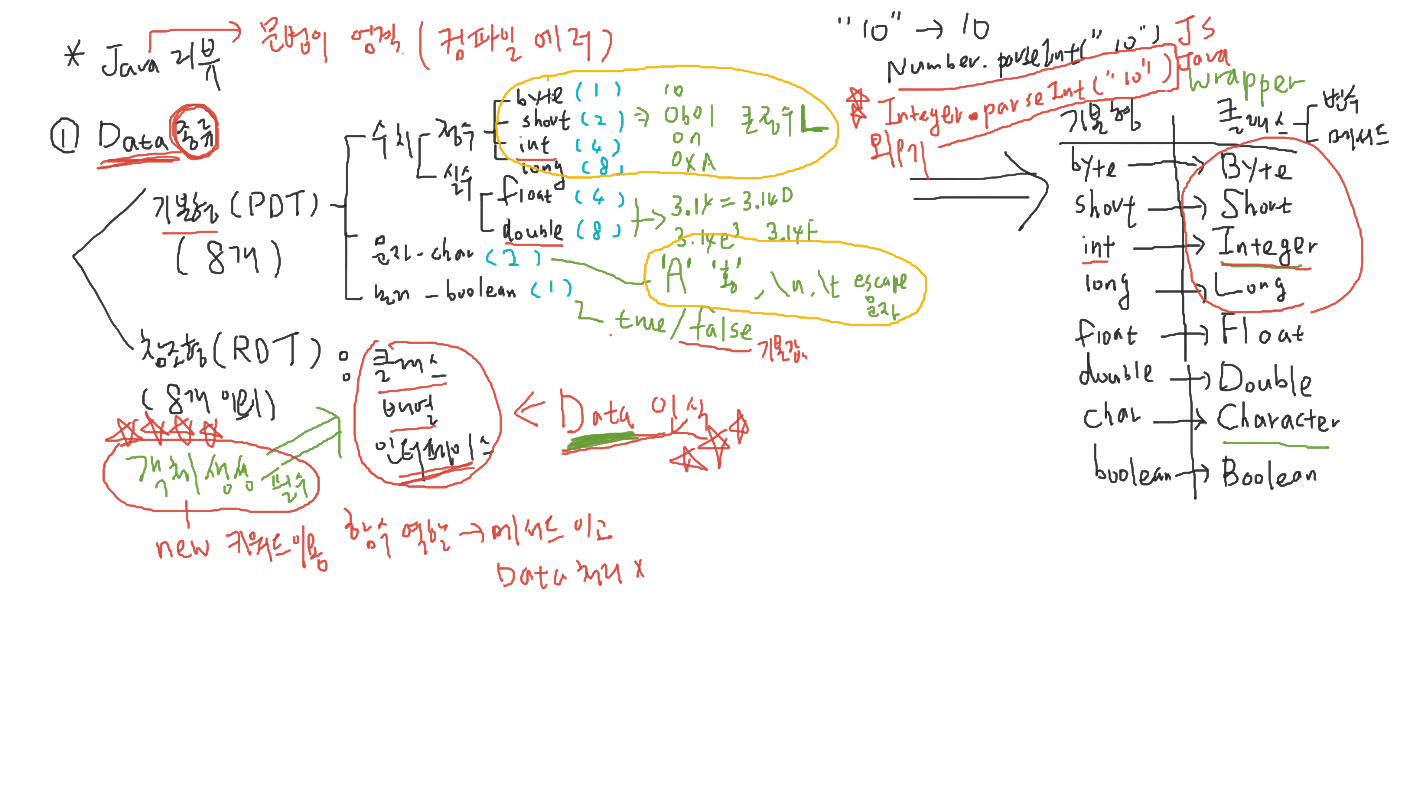 * Java 리뷰 → 문법이 엄격 (컴파일 에러)
① Data 종류
기본형 (PDT)
(8개)
수치
정수
byte (1)
short (2)
int (4)
long (8)
10
012
OxA
큰정수 L
실수
float (4)
double (8)
3.14 = 3.14D
3.14E³ 3.14F
문자 - char (2)
'A' '홍', \n, \t escape
문자
논리 - boolean (1)
true/false
기본값
참조형 (RDT) :
(8개 이외)
클래스
배열
인터페이스
< Data 인식
객체생성 필수
new 키워드이용
함수 역할 → 메서드 이고
Data 처리 x
"10" → 10
Number.parseInt("10") JS
Integer.parseInt("10") Java
외우기
wrapper
기본형
클래스
변수
메서드
byte → Byte
short → Short
int → Integer
long → Long
float → Float
double → Double
char → Character
boolean → Boolean